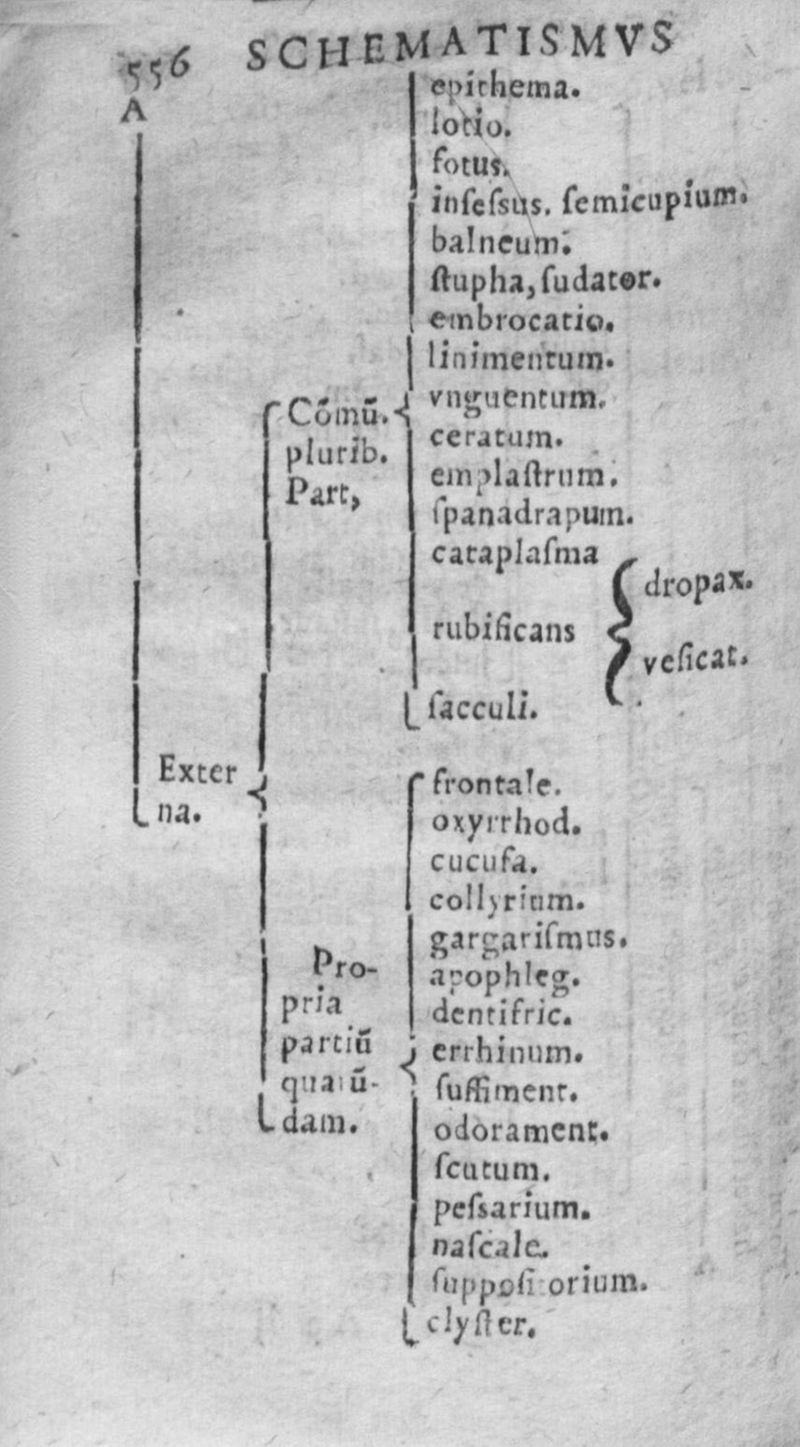 556 SCHEMATISMVS
A
epithema.
lotio.
fotus.
inſeſsus. ſemicupium.
balneum.
ſtupha, ſudator.
embrocatio.
linimentum.
vnguentum.
Cõmũ.
ceratum.
plurib.
emplaſtrum.
Part,
ſpanadrapum.
cataplaſma
dropax.
rubificans
veſicat.
ſacculi.
Exter
na.
frontale.
oxyrrhod.
cucufa.
collyrium.
gargariſmus.
Pro-
apophleg.
pria
dentifric.
partiũ
errhinum.
quarũ-
ſuffiment.
dam.
odorament.
ſcutum.
peſsarium.
naſcale.
ſuppoſitorium.
clyſter.